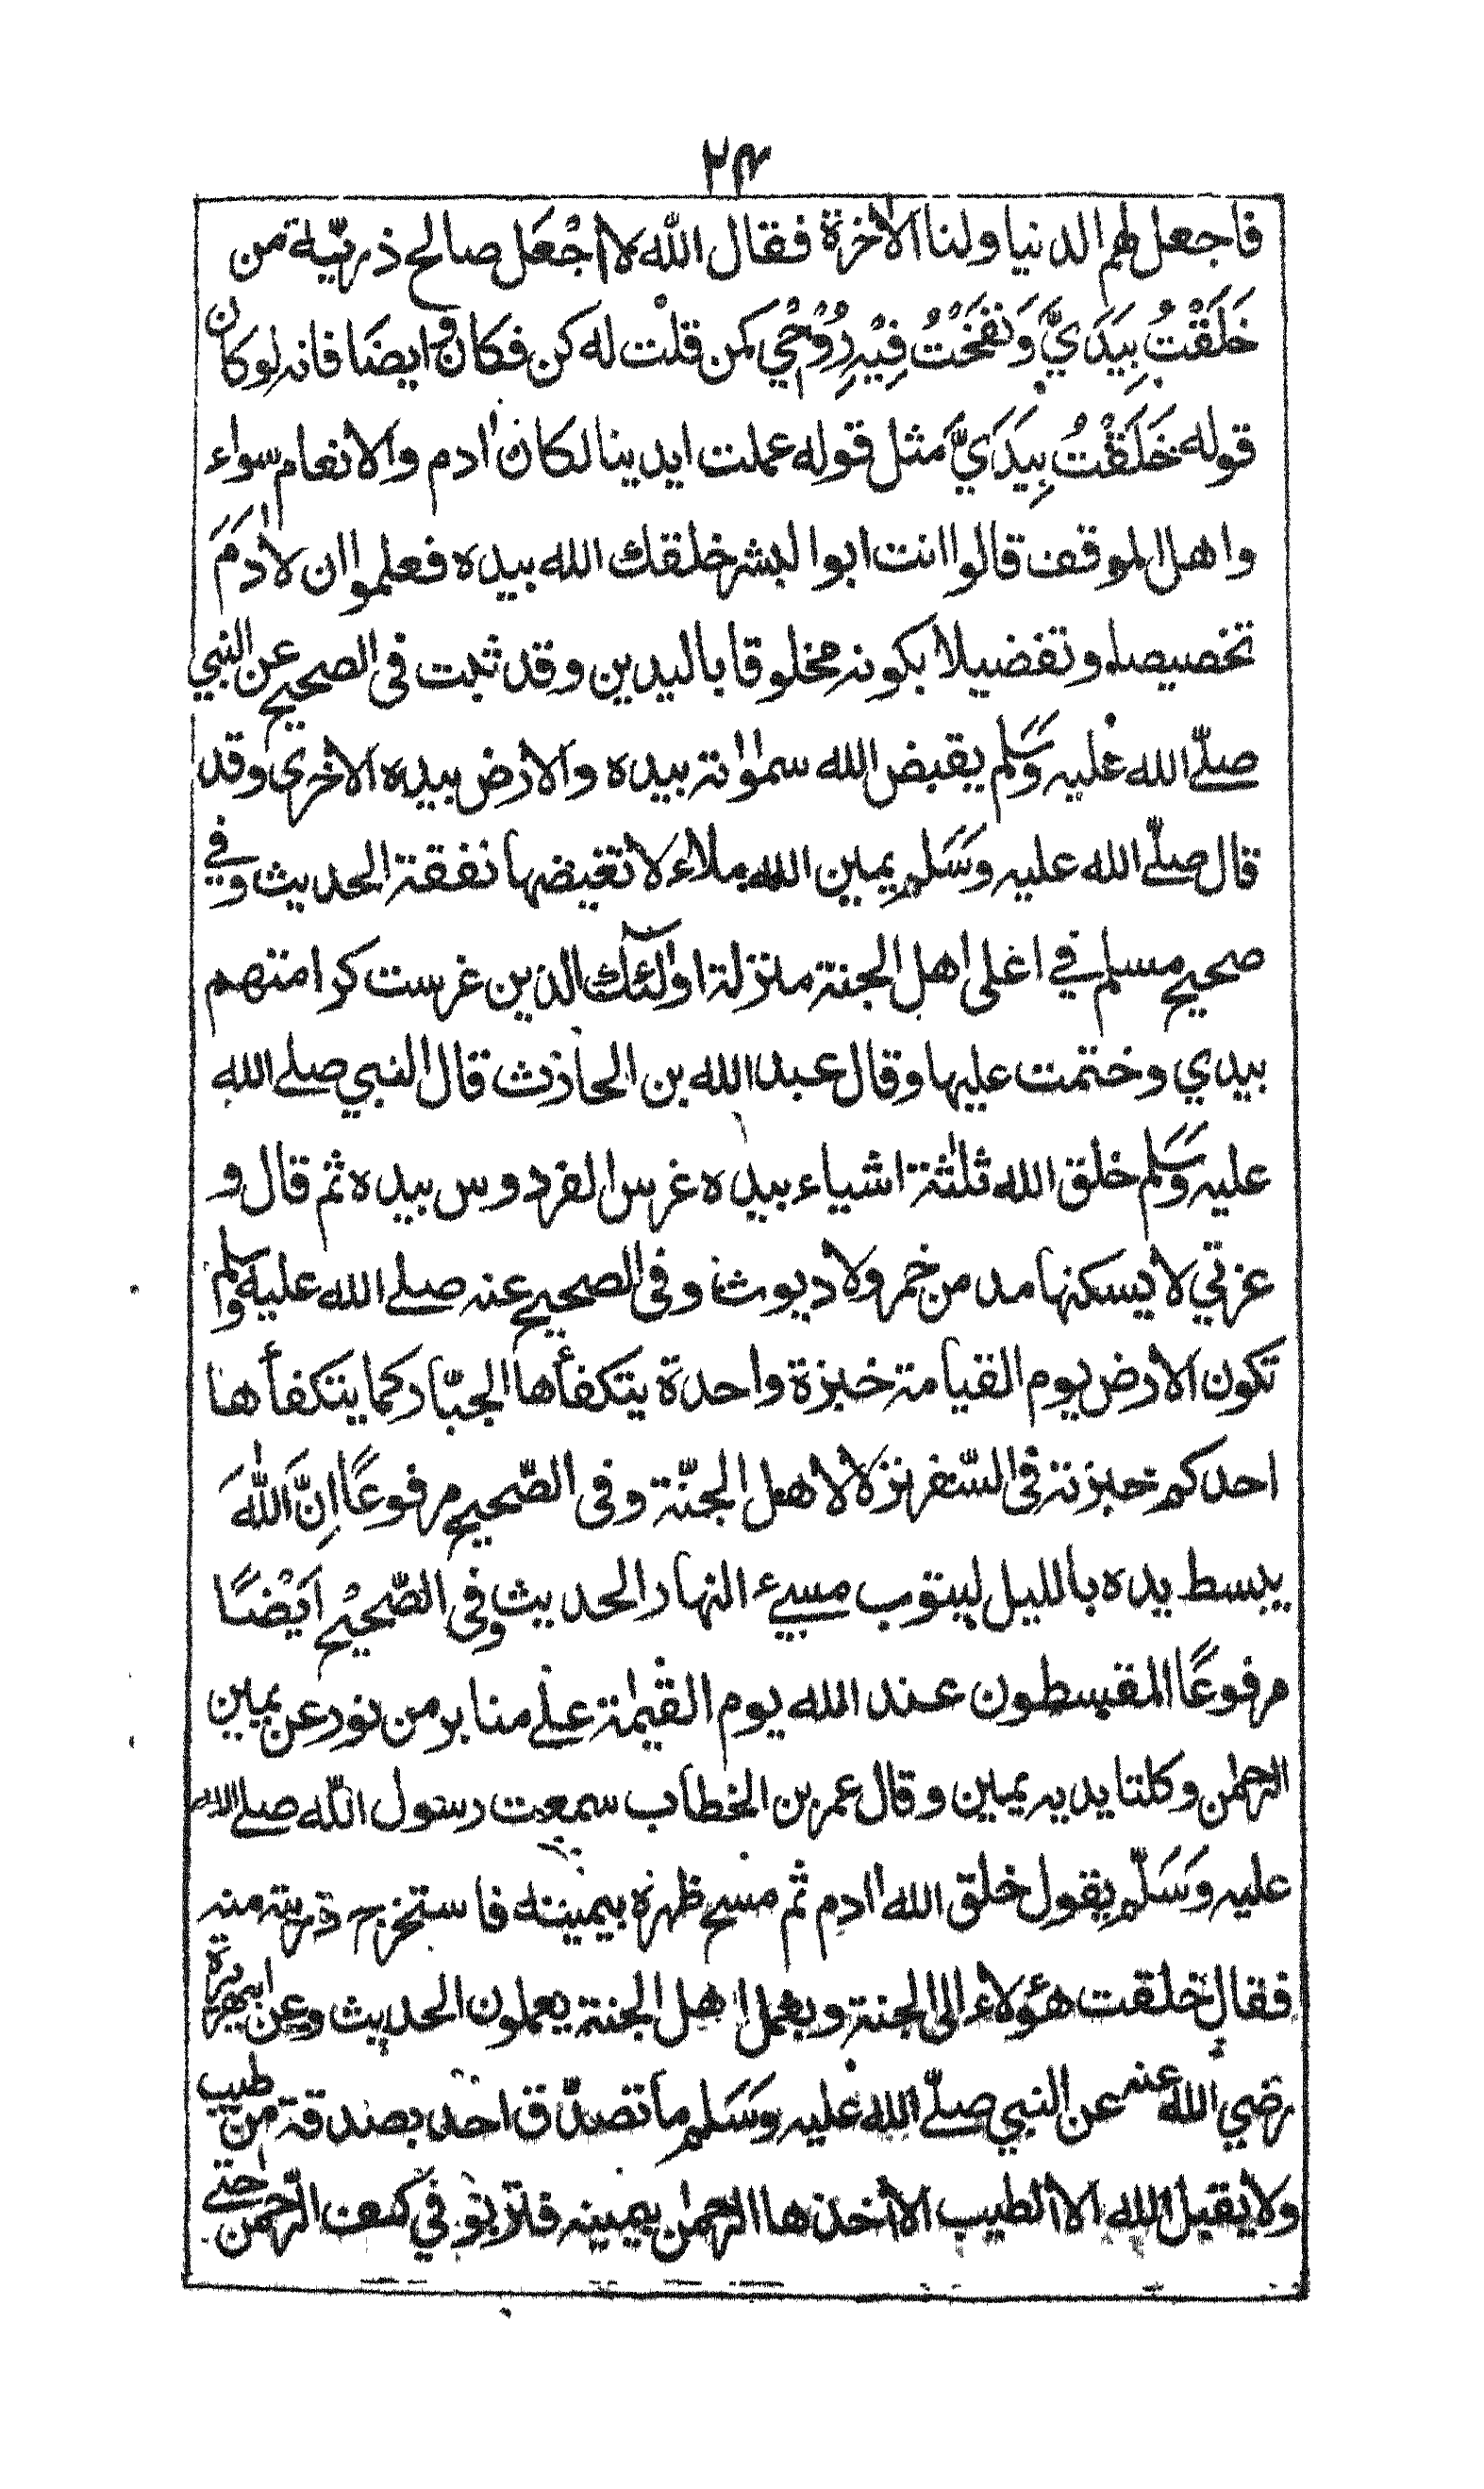 ٢٤
فاجعل لهم الدنيا ولنا الاٰخرة فقال الله لا اَجْعَل صالح ذريّة من
خَلَقْتُ بِيَدَيَّ وَنَفَخْتُ فِيْهِ رُوْحِيْ كمن قلت له كن فكان و ايضَا فانه لو كان
قوله خَلَقْتُ بِيَدَيَّ مثل قوله عملت ايدينا لكان اٰدم والانعام سواء
واهل الموقف قالوا انت ابوا لبشر خلقك الله بيده فعلموا ان لاٰدَمَ
تخصيصاء وتفضيلا بكونه مخلوقا باليدين وقد ثبت فى الصحيح عن النبي
صلّے الله عليه وسَلم يقبض الله سمٰوٰته بيده والارض بيده الاخرى وقد
قال صلّے الله عليه وسَلم يمين الله ملاٰء لا تغيضها نفقة الحديث وفي
صحيح مسلم في اعلى اهل الجنة منزلة اولٰٓئك الذين غرست كرامتهم
بيدي وختمت عليها وقال عبد الله بن الحارث قال النبي صلے الله
عليه وسَلم خلق الله ثلٰثة اشياء بيده غرس الفردوس بيده ثم قال و
عزتي لا يسكنها مدمن خمر ولا ديوث وفى الصحيح عنه صلے الله عليه وسلم
تكون الارض يوم القيامة خبزة واحدة يتكفأها الجبّار كما يتكفأها
احدكم خبزته فى السّفر نزلا لاهل الجنّة وفى الصّحيح مرفوعًا اِنَّ اللّٰهَ
يبسط يده بالليل ليتوب مسيء النهار الحديث وفى الصّحيْح ايْضًا
مرفوعًا المقسطون عند الله يوم القيٰمة علے منابر من نور عن يمين
الرحمٰن وكلتا يديه يمين وقال عمر بن الخطاب سمعت رسول الله صلے الله
عليه وَسَلّم يقول خلق الله اٰدم ثم مسح ظهره بيمينه فاستخرج ذريته منه
فقال خلقت هؤلاء الى الجنة وبعمل اهل الجنة يعملون الحديث وعن ابي هريرة
رضي الله عنه عن النبي صلّے الله عليه وَسَلم ما تصدّق احد بصدقة من طيب
ولا يقبل الله الا الطيب الا اخذها الرحمٰن بيمينه فتربو في كف الرحمن حتے